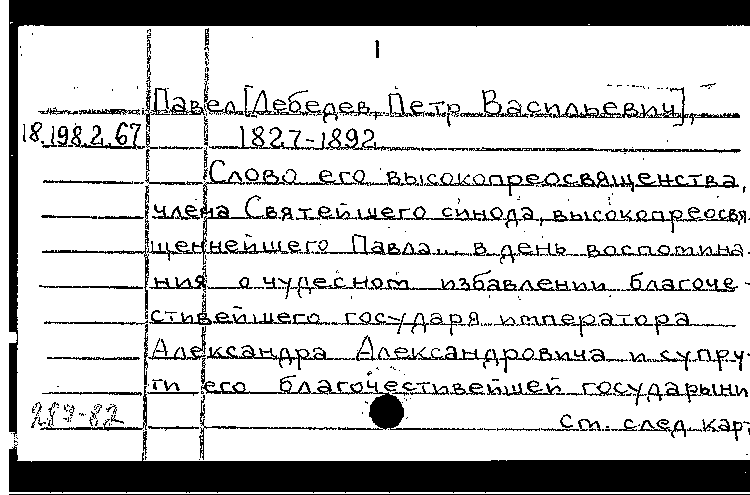 1
Павел [Лебедев, Петр Васильевич],
18.198.2.67 1827-1892
Слово его высокопреосвященства,
члена Святейшего синода, высокопреосвя-
щеннейшего Павла... в день воспомина-
ния о чудесном избавлении благоче-
стивейшего государя императора
Александра Александровича и супру-
ги его благочестивейшей государыни
287-82 См. след. карт